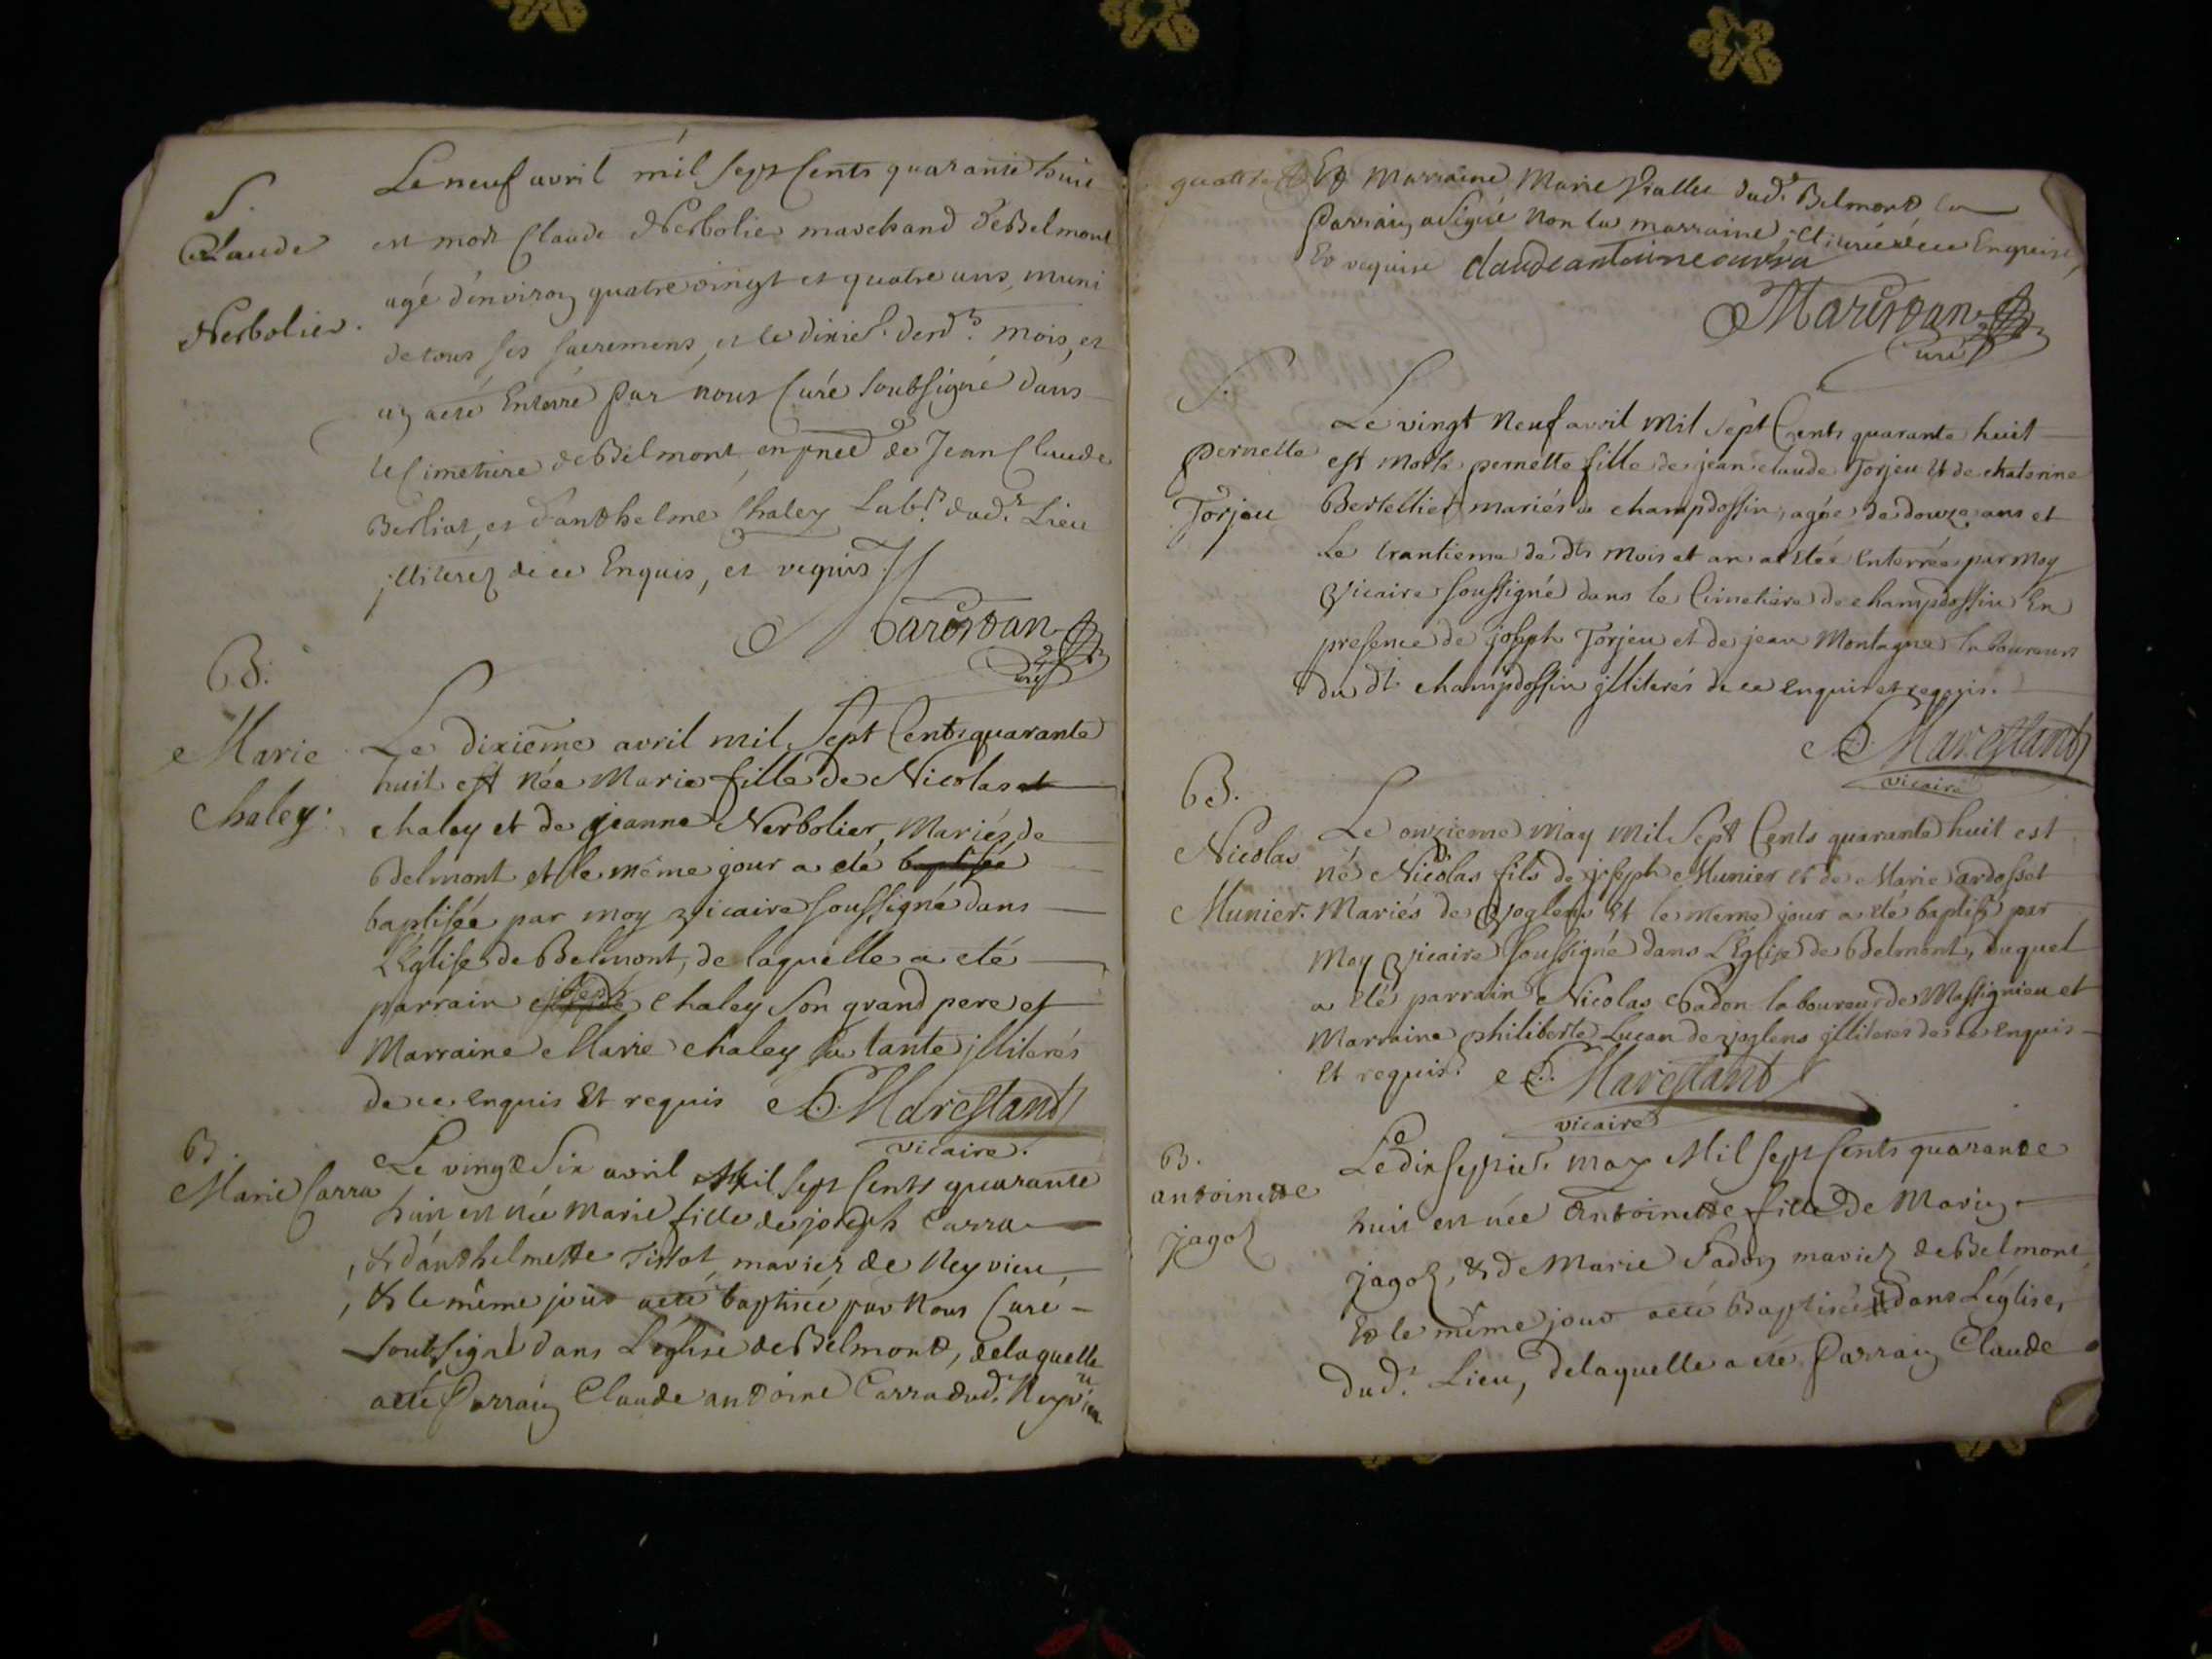 S.
Claude
Nerbolier.
Le neuf avril mil sept Cents quarante huit
est mort Claude Nerbolier marchand de Belmont
agé d'environ quatre vingt et quatre ans, muni
de tous ses sacremens, et le dixie. dud. mois, et
an a eté Enterré par nous Curé soubsigné dans
le Cimetiere de Belmont, en pnce de Jean Claude
Berliat, et d'anthelme Chaley Labr. dud. Lieu
illiterez de ce Enquis, et requis
Marestan
curé
B.
Marie
Chaley.
Le dixième avril mil Sept Cents quarante
huit est née Marie fille de Nicolas et
chaley et de jeanne Nerbolier, Mariés de
Belmont et le meme jour a eté baptisée
baptisée par moy vicaire soussigné dans
L'Eglise de Belmont, de laquelle a eté
parrain joseph chaley son grand pere et
Marraine Marie chaley sa tante illiterés
de ce enquis Et requis Marestand
vicaire.
B.
Marie Carra
Le vingt Six avril Mil sept Cents quarante
huit est née Marie fille de joseph Carra
& d'anthelmette Tissot mariez de Neyvieu,
& le même jour a eté baptisée par Nous Curé
soubsigné dans L'église de Belmont, de laquelle
a eté Parrain Claude antoine Carra dud. Neyvieu
Et Marraine Marie Vallet dud. Belmont, le
Parrain a signé non la marraine, illiterée de ce Enquise,
Et requise claude antoine carra
Marestan
Curé
S.
pernette
Torjeu
Le vingt Neuf avril Mil Sept Cents quarante huit
est Morte pernette fille de jean claude Torjeu Et de chaterine
Bertellier mariés de champdossin, agée de douze ans et
Le trantieme de dt Mois et an a etée Enterrée par Moy
Vicaire soussigné dans le Cimetiere de champdossin En
presence de joseph Torjeu et de jean Montagne laboureurs
du dt champdossin jlliterés de ce enquis et requis.
Marestand
vicaire
B.
Nicolas
Munier.
Le onzieme May Mil Sept Cents quarante huit est
né Nicolas fils de joseph Munier et de Marie ardosset
Mariés de Voglens Et le meme jour a eté baptisé par
Moy Vicaire soussigné dans L'Eglise de Belmont, duquel
a eté parrain Nicolas Badon laboureur de Massignieu et
Marraine philiberte Luçan de voglens jlliterés de ce Enquis
Et requis. Marestand
vicaire
B.
antoinette
Jagoz
Le dix septie. may Mil sept Cents quarante
huit est née Antoinette fille de Marin
Jagoz, & de Marie Badon mariez de Belmont,
Et le même jour a eté Baptisée dans L'église,
dud. Lieu, de laquelle a eté Parrain Claude